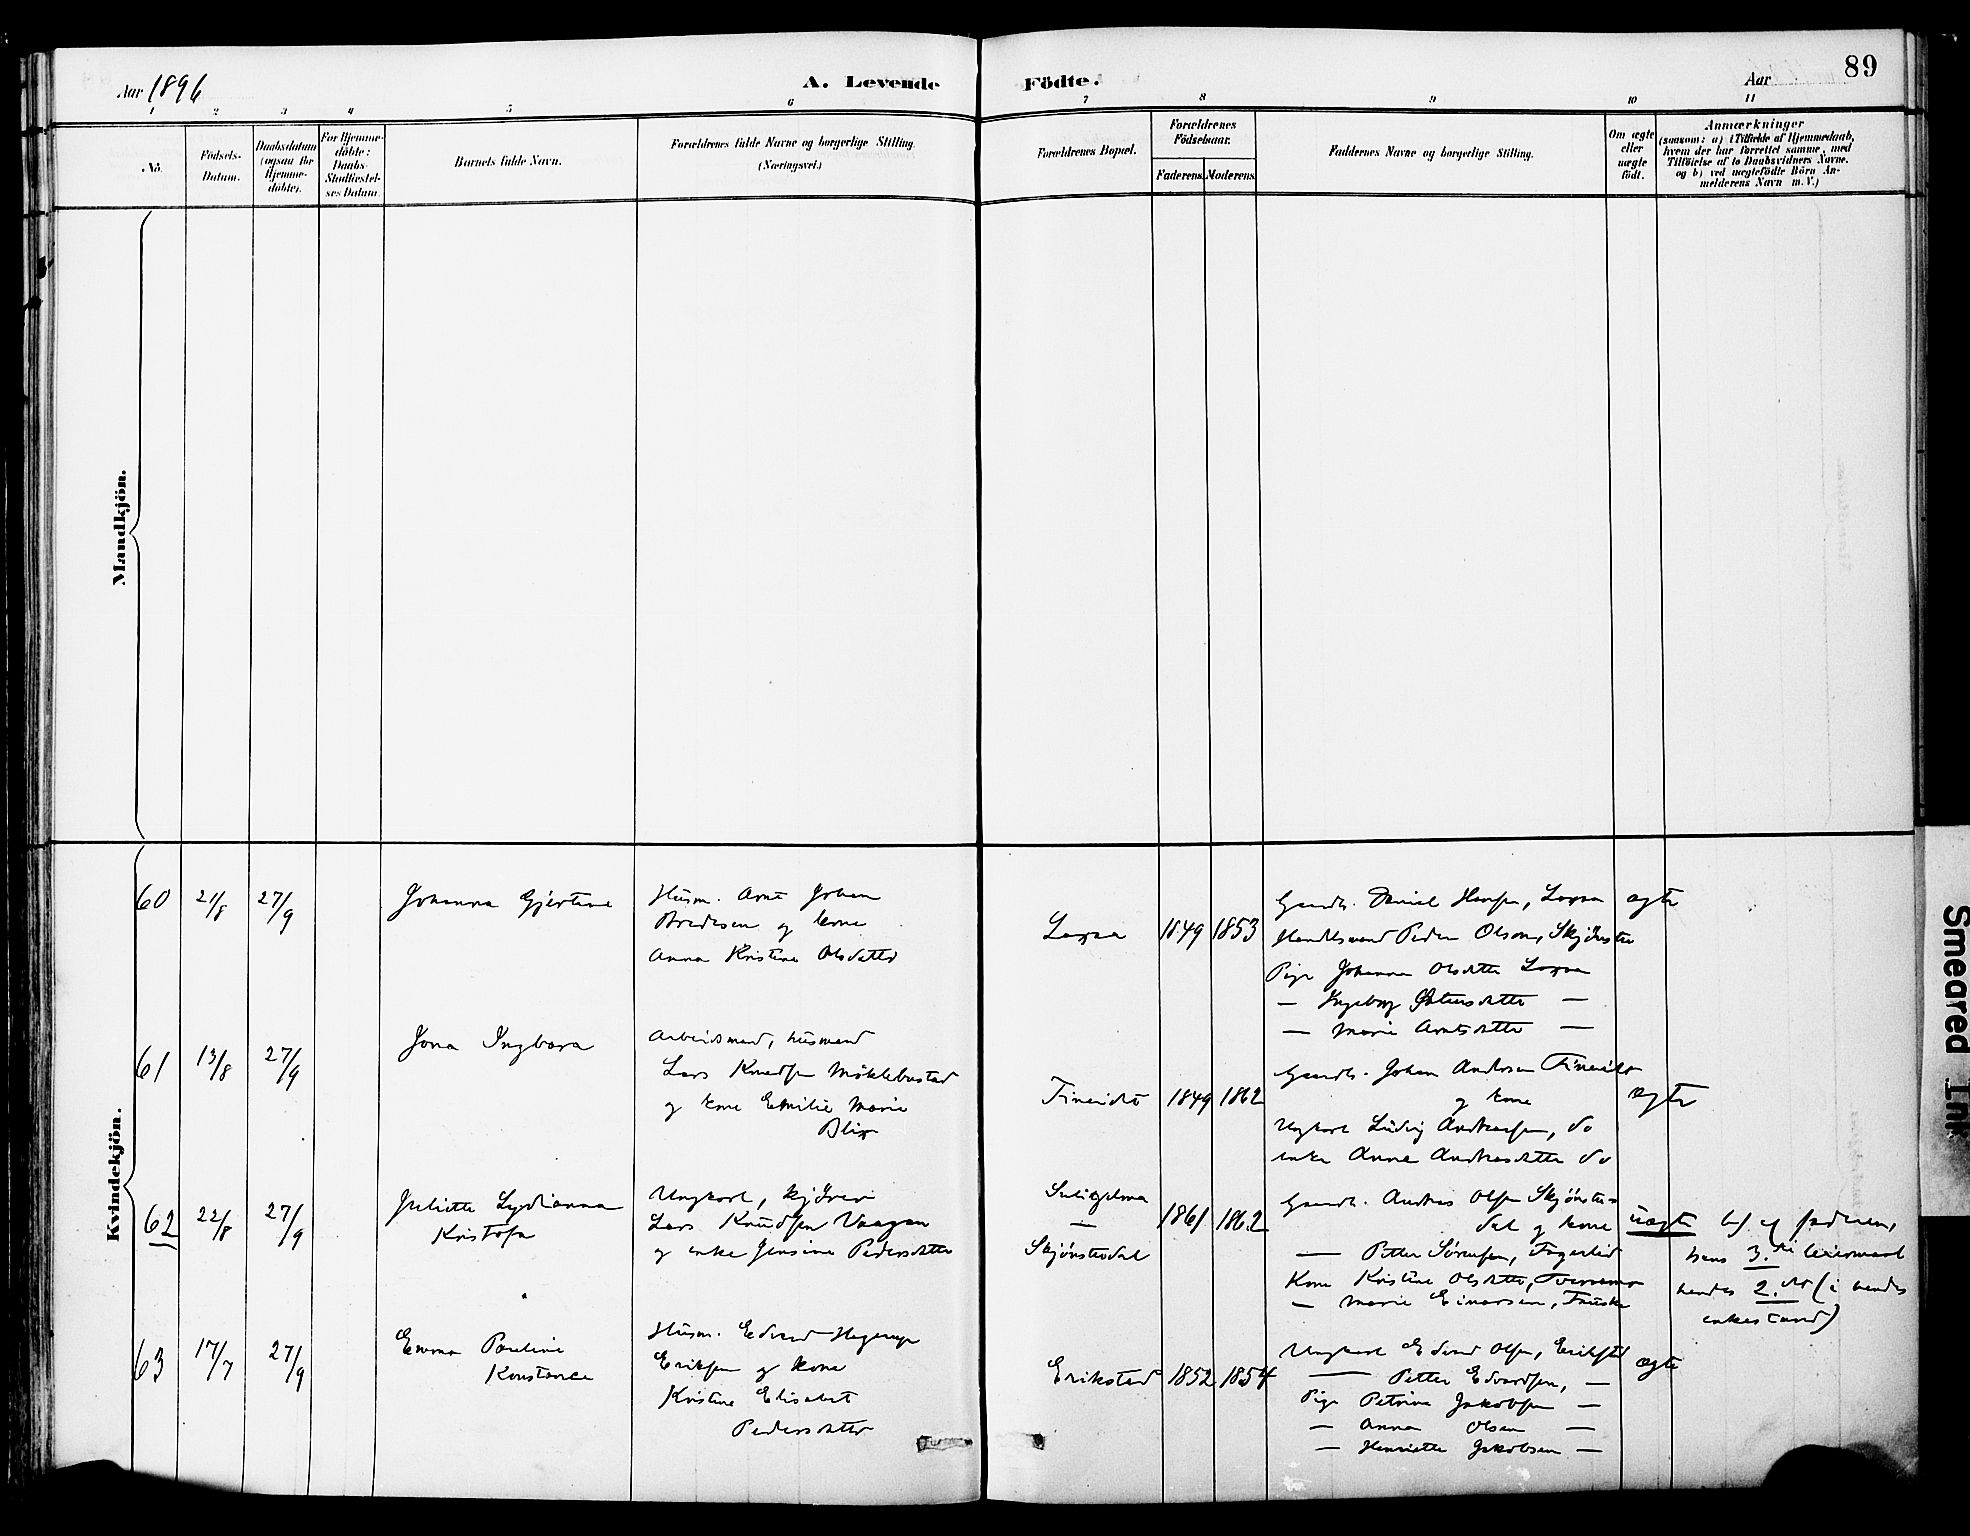 Aar 1896
A. Levende Födte.
Aar
89
1 2 3 4 5 6 7 8 9 10 11
No.
Födsels-
Datum.
Daabsdatum
(ogsaa for
Hjemme-
döbte).
For Hjemme-
döbte:
Daabs-
Stadfæstel-
ses Datum.
Barnets fulde Navn.
Forældrenes fulde Navne og borgerlige Stilling.
(Næringsvei.)
Forældrenes Bopæl.
Forældrenes
Födselsaar.
Faderens. Moderens.
Faddernes Navne og borgerlige Stilling.
Om ægte
eller
uægte
födt.
Anmærkninger
(saasom: a) i Tilfælde af Hjemmedaab,
hvem der har forrettet samme, med
Tilföielse af to Daabsvidners Navne.
og b) ved uægtefödte Börn An-
melderens Navn m. V.)
Mandkjön.
Kvindekjön.
60 21/8 27/9
Johanna Gjertine
Husm. Arnt Johan
Bredesen og kone
Anna Kristine Olsdatter
Laxaa 1849 1853
Gaardb. Daniel Hansen, Laxaa
Handelsmand Peder Olsen, Skjönstu
Pige Johanna Olsdatter Laxaa
— Ingeborg —
— Marie Arntsdatter —
ægte
61 13/8 27/9
Jona Ingbora
Arbeidsmand, husmand
Lars Knudsen Möklebustad
og kone Emilie Marie
Blix
Fineidet 1849 1862
Gaardb. Johan Andersen Fineidet
og kone
Ungkarl Ludvig Andreassen, do
enke Anne Andreasdatter do
ægte
62 22/8 27/9
Juliette Lydianna
Kristofa
Ungkarl,
Lars Knudsen Vaagan
og enke Jensine Pedersdatter
Sulitjelma
—
Skjönstuedal
1861 1862
Gaardb. Andreas Olsen Skjönstu-
dal og kone
— Petter Sörensen, Fagerlid
Kone Kristine Olsdatter,
— Marie Einarsen, Fauske
uægte
hans 3. die leiermaal
hendes 2. det (i hendes
enkestand)
63 17/7 27/9
Emma Pauline
Konstance
Husm. Edvard Hagerup
Eriksen og kone
Kristine Elisabet
Pedersdatter
Erikstad 1852 1854
Ungkarl Edvard Olsen, Erikstd
— Petter Edvardsen, —
Pige Petrine Jakobsen —
— Anna Olsen —
— Henriette Jakobsen —
ægte
Smeared Ink